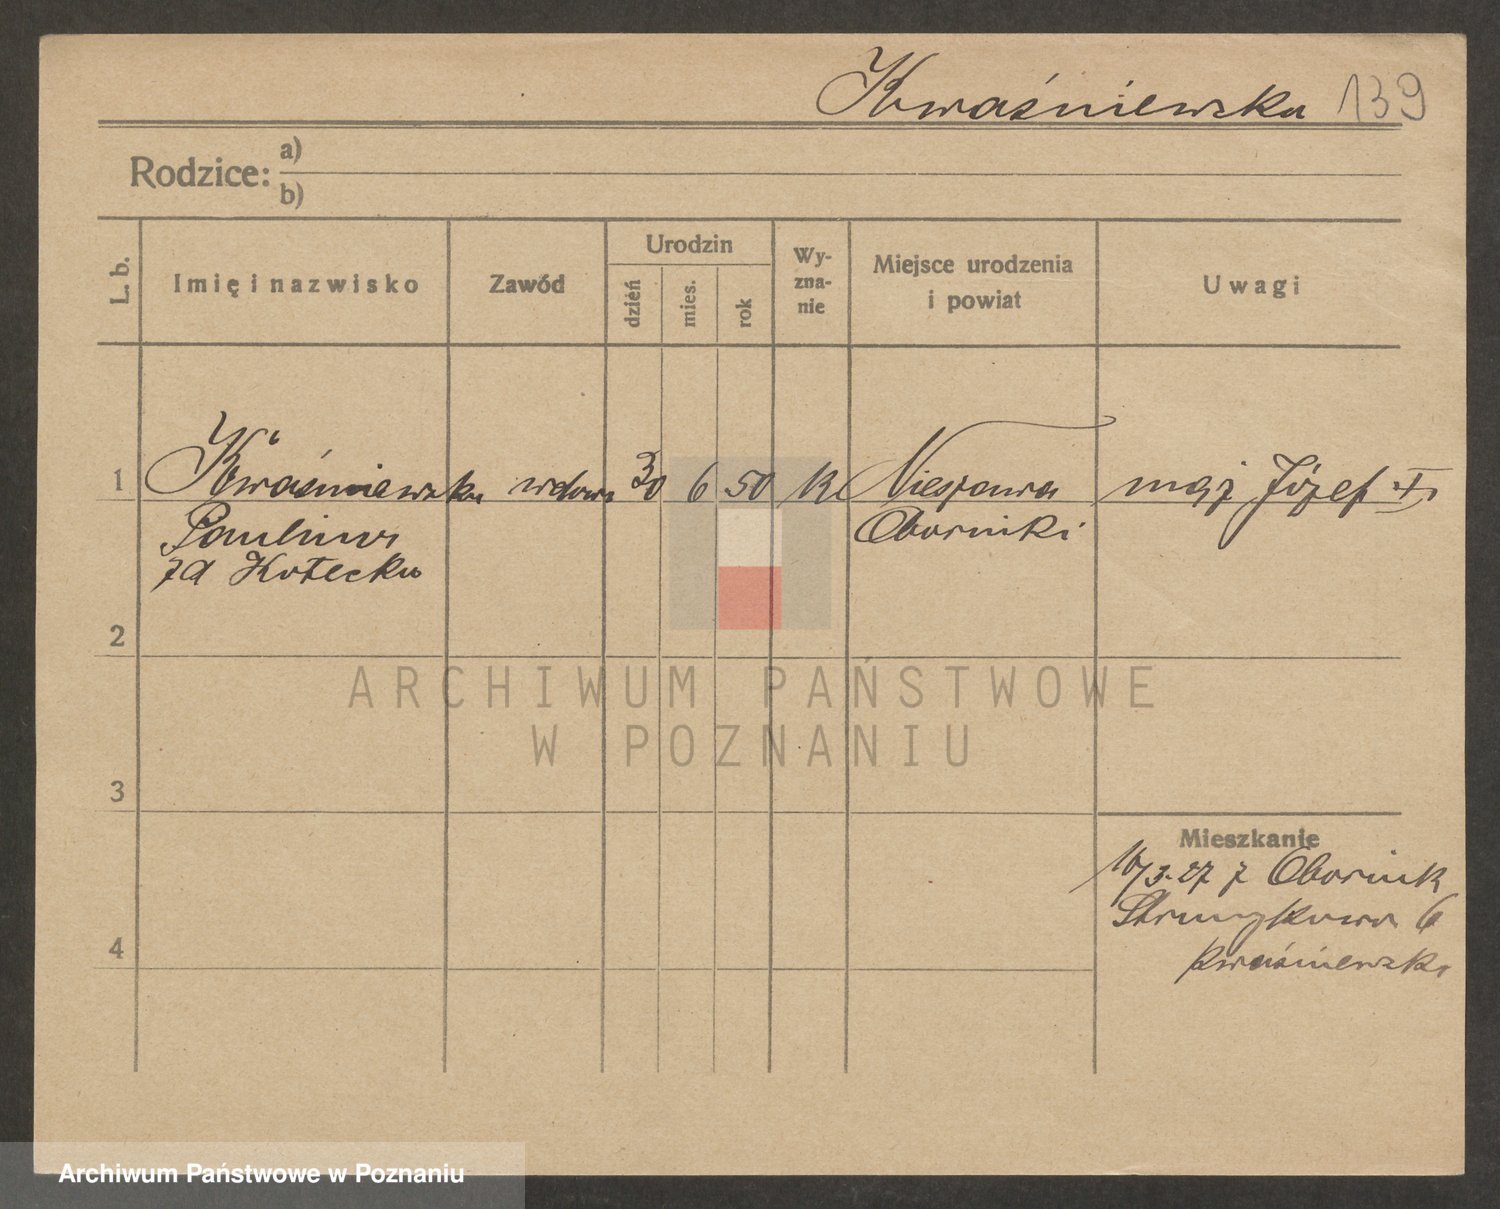 Kwaśniewska 139
Rodzice: a)
b)
L. b. Imię i nazwisko Zawód Urodzin dzień mies. rok Wy-zna-nie Miejsce urodzenia i powiat Uwagi
1 Kwaśniewska wdowa 30 6 50 Nieszawa mąż Józef
Paulina Oborniki
zd Kotecka
2
3
4
Mieszkanie
16/3.27 z Obornik
Strumykowa 6
Kwaśniewska
ARCHIWUM PAŃSTWOWE
W POZNANIU
Archiwum Państwowe w Poznaniu